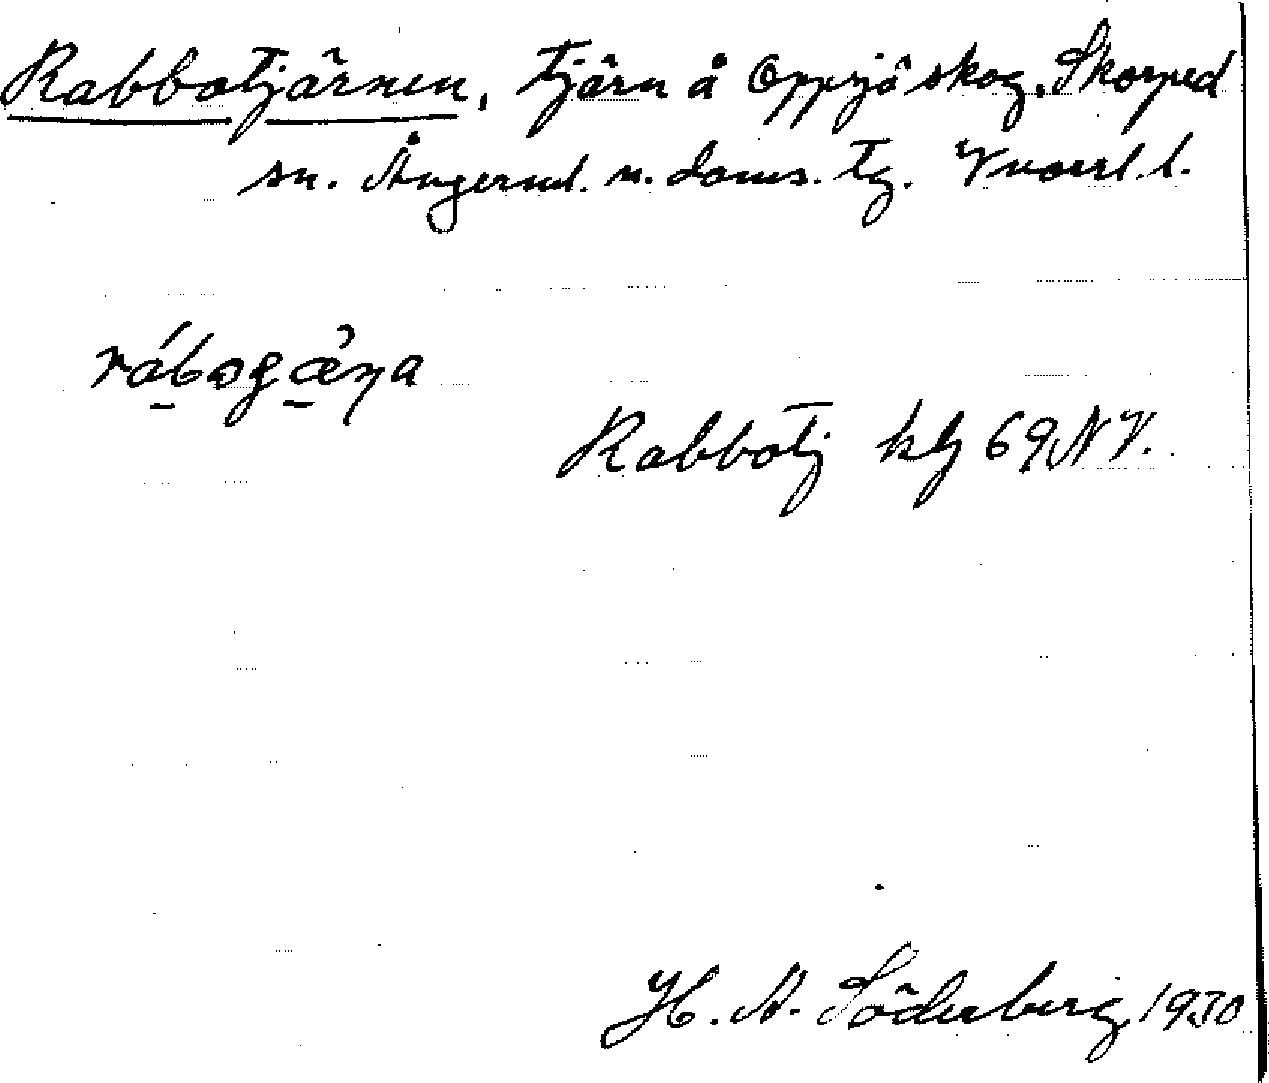 Rabbotjärnen, tjärn å Oppsjö skog, Skorped
sn. Ångerml. n. doms. tg. Vnorrl. l.
rábogæ̀ṇa
Rabbotj kbl 69 NV.
H. A. Söderberg 1930